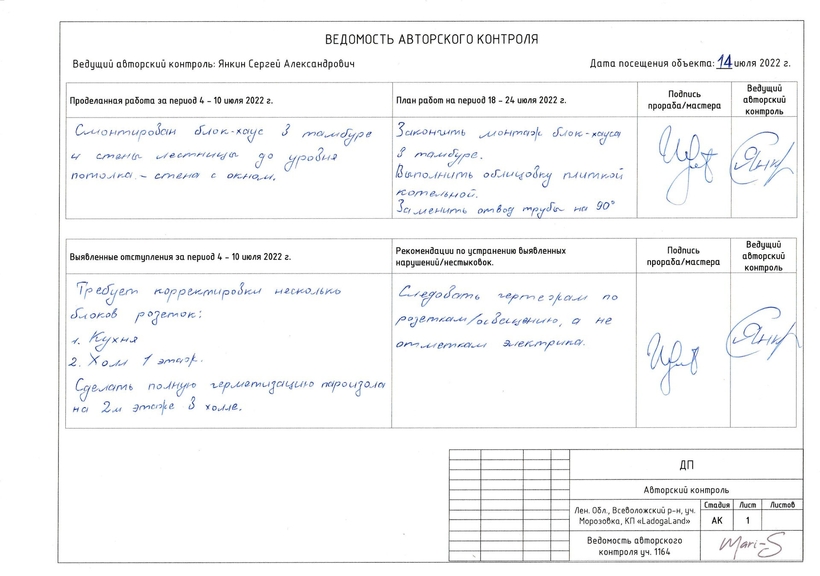 ВЕДОМОСТЬ АВТОРСКОГО КОНТРОЛЯ
Ведущий авторский контроль: Янкин Сергей Александрович
Дата посещения объекта: 14 июля 2022 г.
Проделанная работа за период 4 - 10 июля 2022 г.
План работ на период 18 - 24 июля 2022 г.
Подпись
прораба/мастера
Ведущий
авторский
контроль
Смонтирован блок-хаус в тамбуре
и стены лестницы до уровня
потолка - стена с окном.
Закончить монтаж блок-хауса
в тамбуре.
Выполнить облицовку плиткой
котельной.
Заменить отвод трубы на 90°
Янк
Выявленные отступления за период 4 - 10 июля 2022 г.
Рекомендации по устранению выявленных
нарушений/нестыковок.
Подпись
прораба/мастера
Ведущий
авторский
контроль
Требует корректировки несколько
блоков розеток:
1. Кухня
2. Холл 1 этаж.
Сделать полную герметизацию пароизола
на 2м этаже в холле.
Следовать чертежам по
розеткам/освещению, а не
отметкам электрика.
Янк
ДП
Авторский контроль
Лен. Обл., Всеволожский р-н, уч.
Морозовка, КП «LadogaLand»
Стадия
Лист
Листов
АК
1
Ведомость авторского
контроля уч. 1164
Mari-S